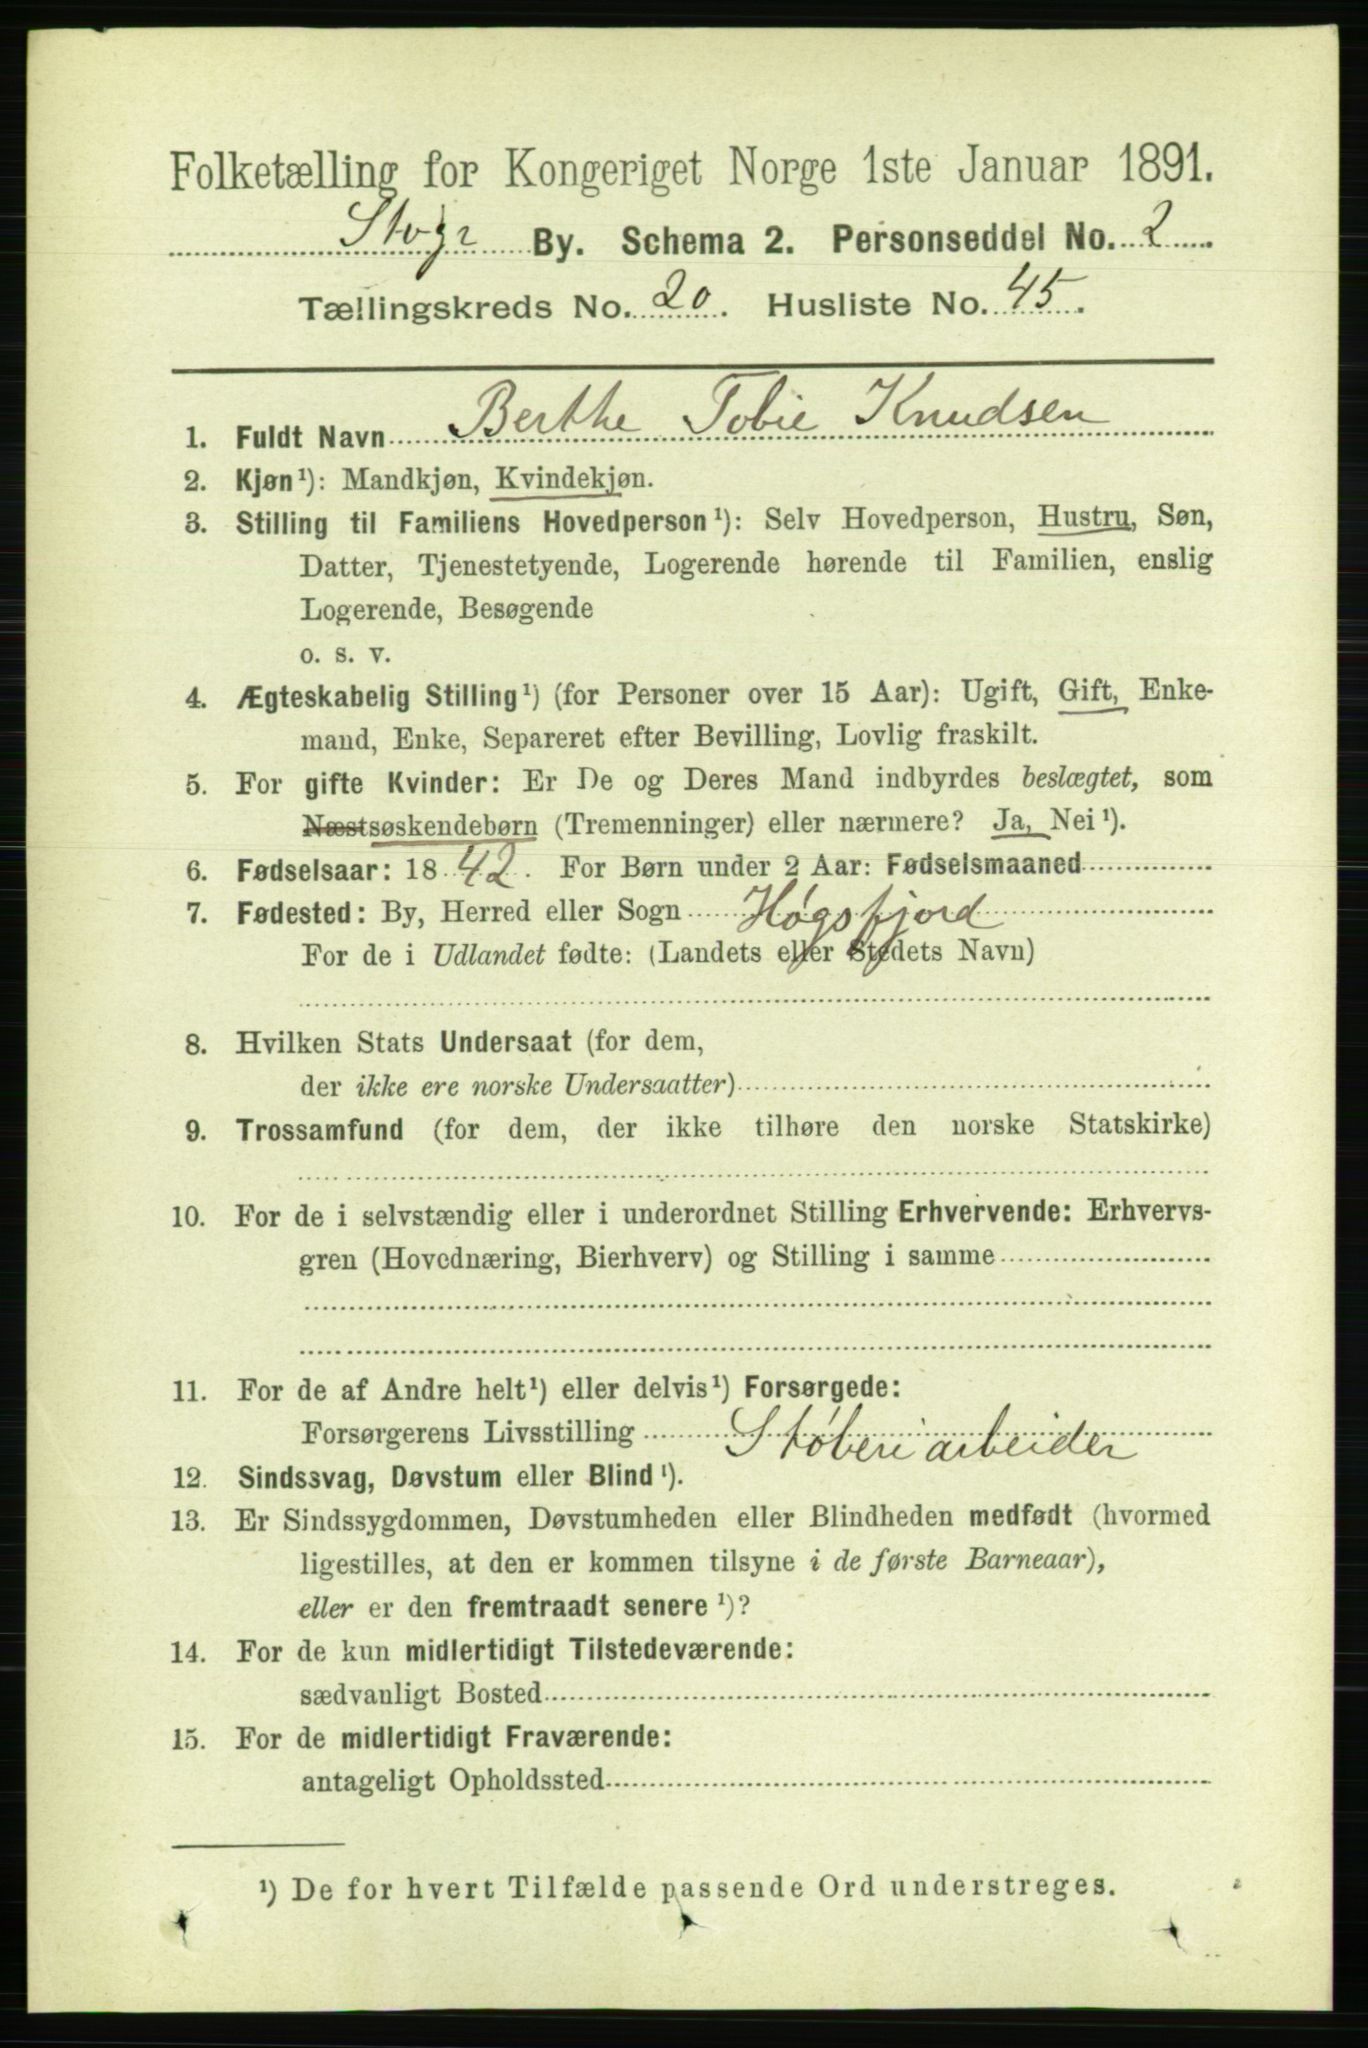 Folketælling for Kongeriget Norge 1ste Januar 1891.
Stvgr By. Schema 2. Personseddel No. 2
Tællingskreds No. 20. Husliste No. 45.
1. Fuldt Navn Berthe Tobie Knudsen
2. Kjøn¹): Mandkjøn, Kvindekjøn.
3. Stilling til Familiens Hovedperson¹): Selv Hovedperson, Hustru, Søn,
Datter, Tjenestetyende, Logerende hørende til Familien, enslig
Logerende, Besøgende
o. s. v.
4. Ægteskabelig Stilling¹) (for Personer over 15 Aar): Ugift, Gift, Enke-
mand, Enke, Separeret efter Bevilling, Lovlig fraskilt.
5. For gifte Kvinder: Er De og Deres Mand indbyrdes beslægtet, som
Næstsøskendebørn (Tremenninger) eller nærmere? Ja, Nei¹).
6. Fødselsaar: 1842. For Børn under 2 Aar: Fødselsmaaned
7. Fødested: By, Herred eller Sogn Høgsfjord
For de i Udlandet fødte: (Landets eller Stedets Navn)
8. Hvilken Stats Undersaat (for dem,
der ikke ere norske Undersaatter)
9. Trossamfund (for dem, der ikke tilhøre den norske Statskirke)
10. For de i selvstændig eller i underordnet Stilling Erhvervende: Erhvervs-
gren (Hovednæring, Bierhverv) og Stilling i samme
11. For de af Andre helt¹) eller delvis¹) Forsørgede:
Forsørgerens Livsstilling Støberiarbeider
12. Sindssvag, Døvstum eller Blind¹).
13. Er Sindssygdommen, Døvstumheden eller Blindheden medfødt (hvormed
ligestilles, at den er kommen tilsyne i de første Barneaar),
eller er den fremtraadt senere¹)?
14. For de kun midlertidigt Tilstedeværende:
sædvanligt Bosted
15. For de midlertidigt Fraværende:
antageligt Opholdssted
¹) De for hvert Tilfælde passende Ord understreges.